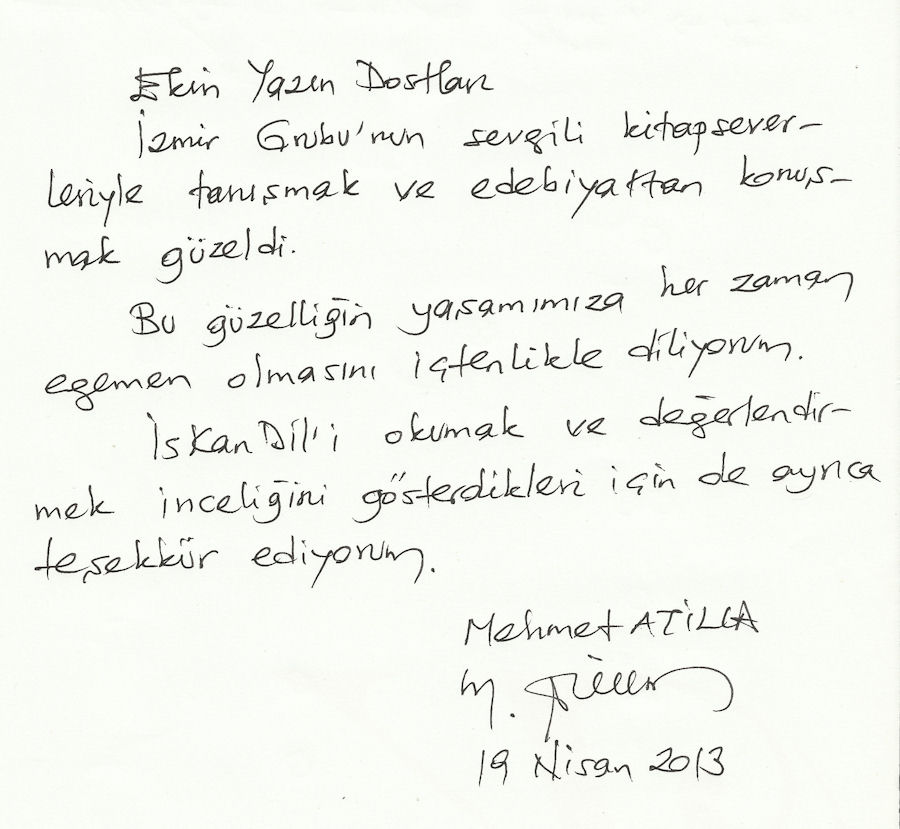 Ekin Yazın Dostları
İzmir Grubu'nun sevgili kitapsever-
leriyle tanışmak ve edebiyattan konuş-
mak güzeldi.
Bu güzelliğin yaşamımıza her zaman
egemen olmasını içtenlikle diliyorum.
İskanDil'i okumak ve değerlendir-
mek inceliğini gösterdikleri için de ayrıca
teşekkür ediyorum.
Mehmet ATİLLA
M. Atilla
19 Nisan 2013